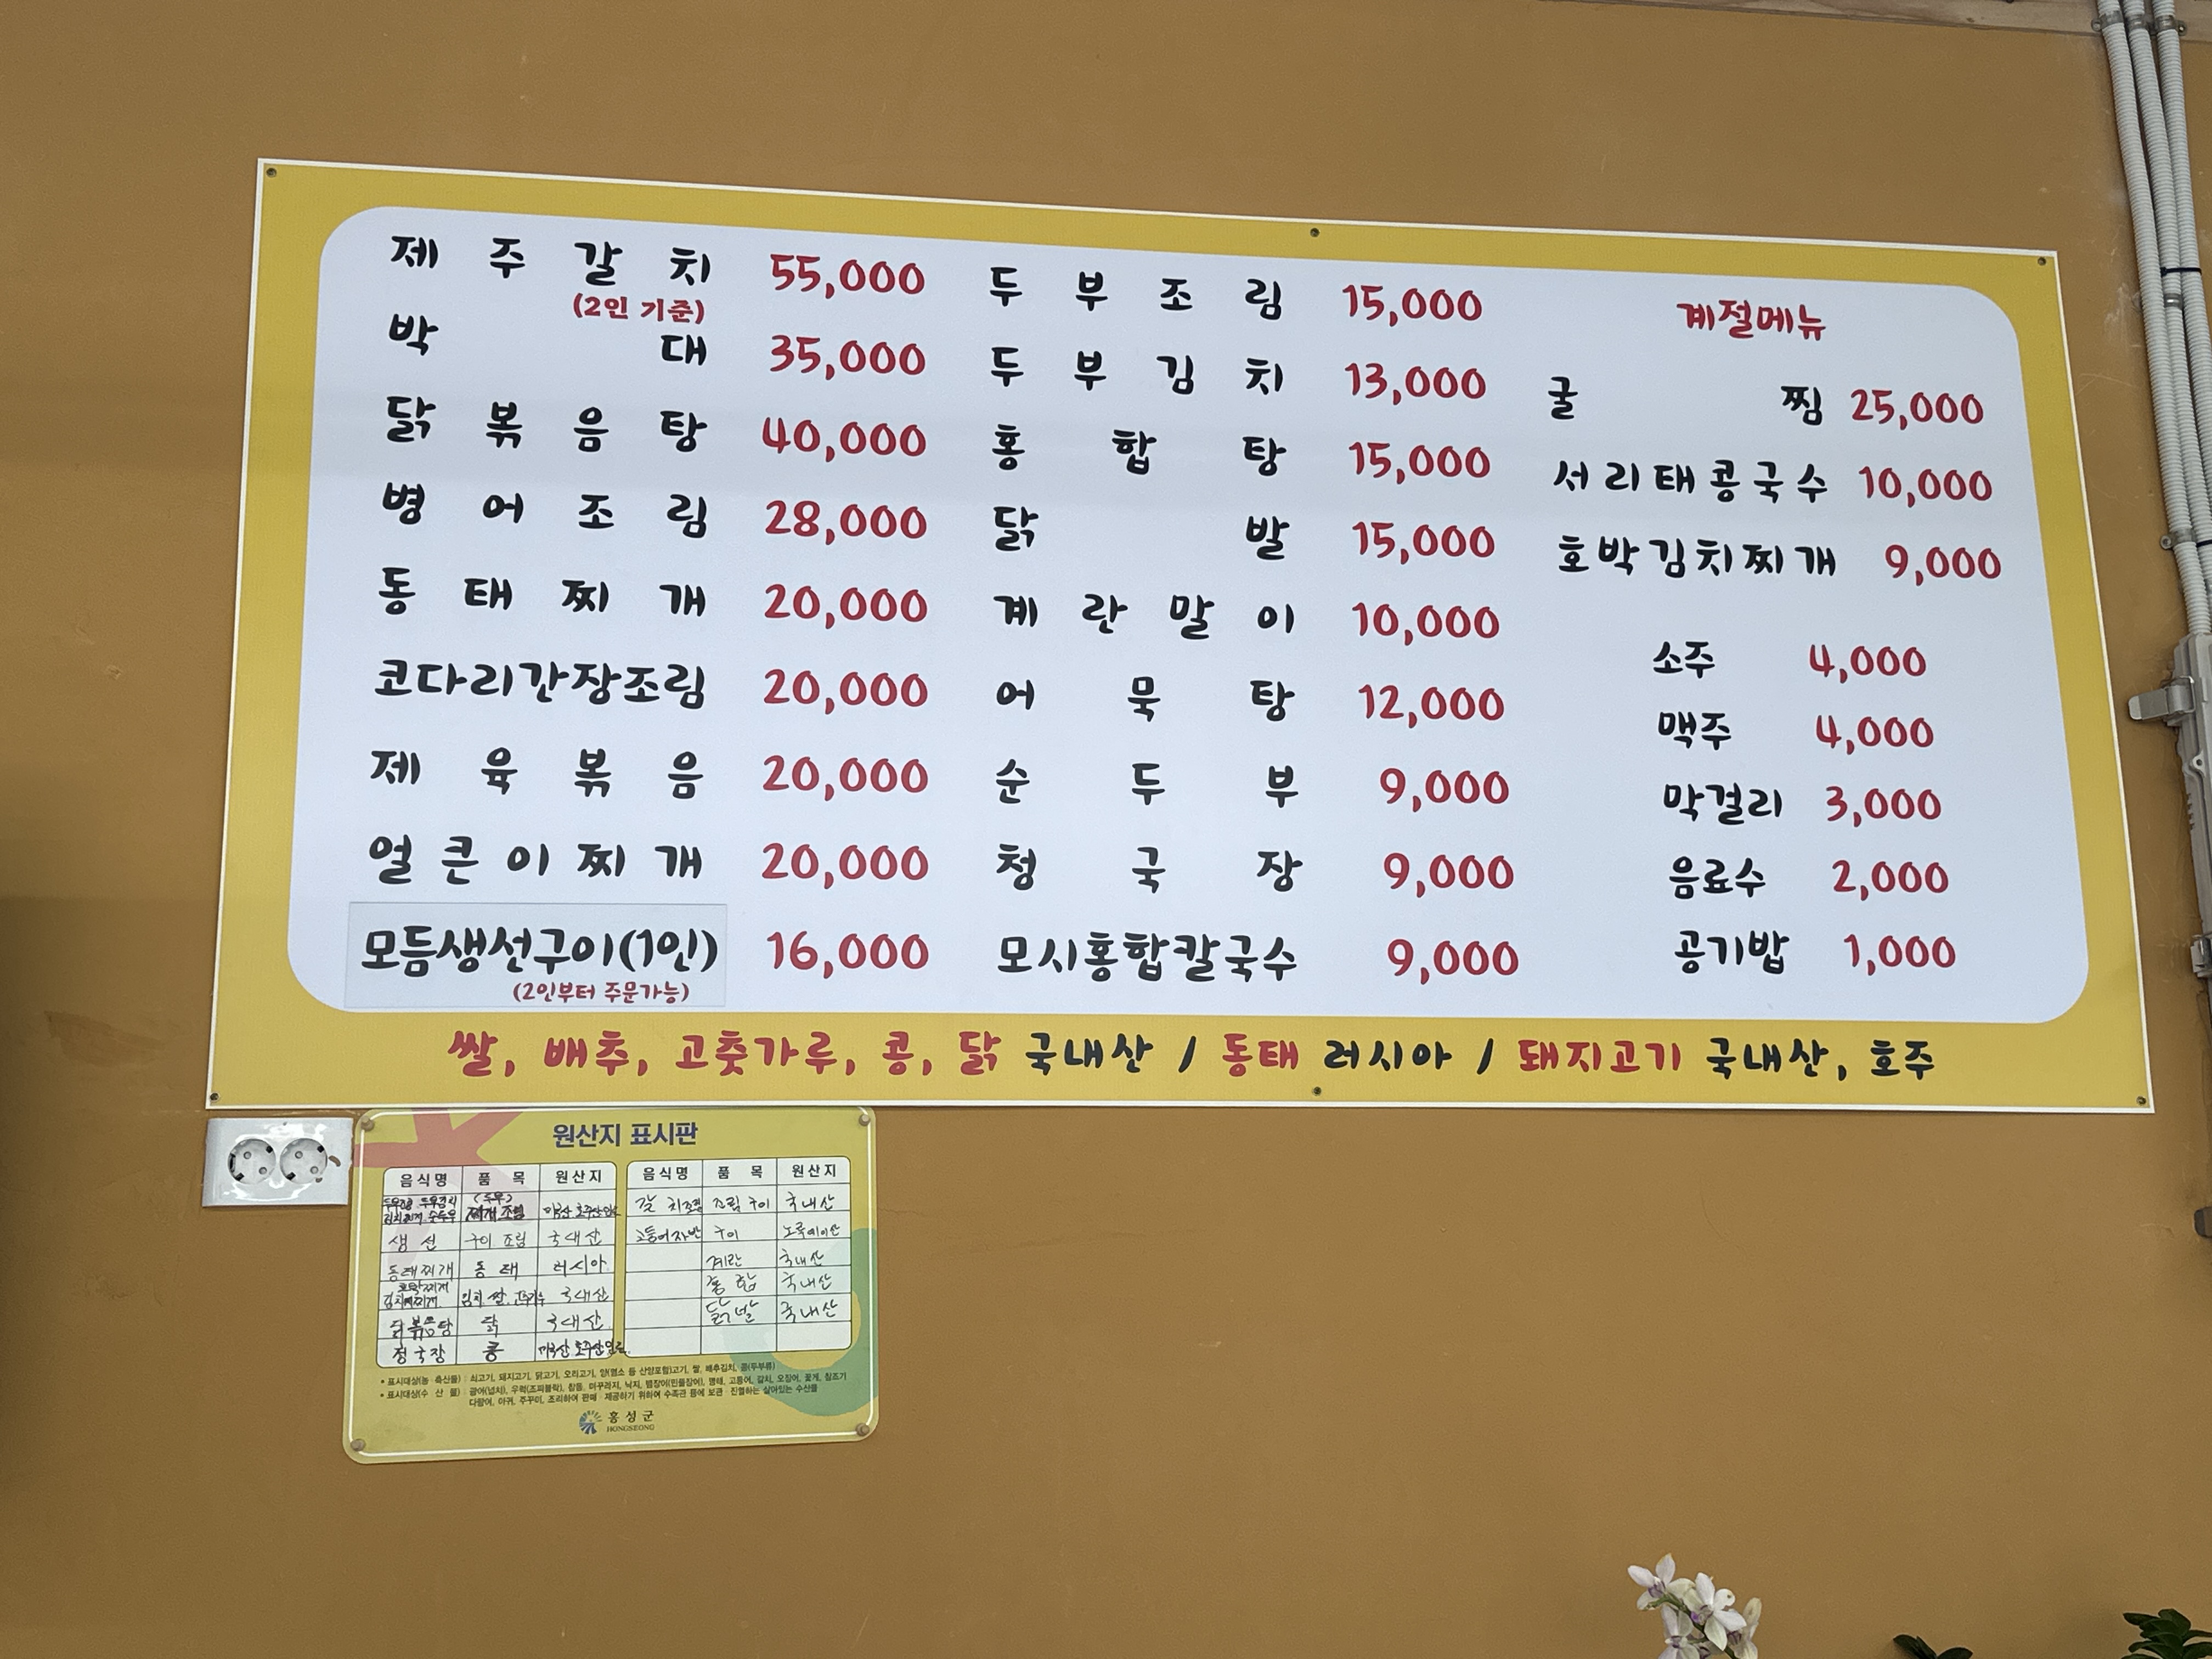 제주갈치 55,000
(2인 기준)
박대 35,000
닭볶음탕 40,000
병어조림 28,000
동태찌개 20,000
코다리간장조림 20,000
제육볶음 20,000
얼큰이찌개 20,000
모듬생선구이(1인) 16,000
(2인부터 주문가능)
두부조림 15,000
두부김치 13,000
홍합탕 15,000
닭발 15,000
계란말이 10,000
어묵탕 12,000
순두부 9,000
청국장 9,000
모시홍합칼국수 9,000
계절메뉴
굴찜 25,000
서리태콩국수 10,000
호박김치찌개 9,000
소주 4,000
맥주 4,000
막걸리 3,000
음료수 2,000
공기밥 1,000
쌀, 배추, 고춧가루, 콩, 닭 국내산 / 동태 러시아 / 돼지고기 국내산, 호주
원산지 표시판
음식명 품목 원산지
두부조림 두부김치 (두부)
김치찌개 순두부 찌개 조림
생선 구이 조림 국내산
동태찌개 동태 러시아
호박찌개
김치찌개 김치 쌀 고추가루 국내산
닭볶음탕 닭 국내산
청국장 콩
음식명 품목 원산지
갈치조림 조림 구이 국내산
고등어자반 구이 노르웨이산
계란 국내산
홍합 국내산
닭발 국내산
• 표시대상(농·축산물) : 쇠고기, 돼지고기, 닭고기, 오리고기, 양(염소 등 산양포함)고기, 쌀, 배추김치, 콩(두부류)
• 표시대상(수 산 물) : 광어(넙치), 우럭(조피볼락), 참돔, 미꾸라지, 낙지, 뱀장어(민물장어), 명태, 고등어, 갈치, 오징어, 꽃게, 참조기
다랑어, 아귀, 주꾸미, 조리하여 판매·제공하기 위하여 수족관 등에 보관·진열하는 살아있는 수산물
홍성군
HONGSEONG